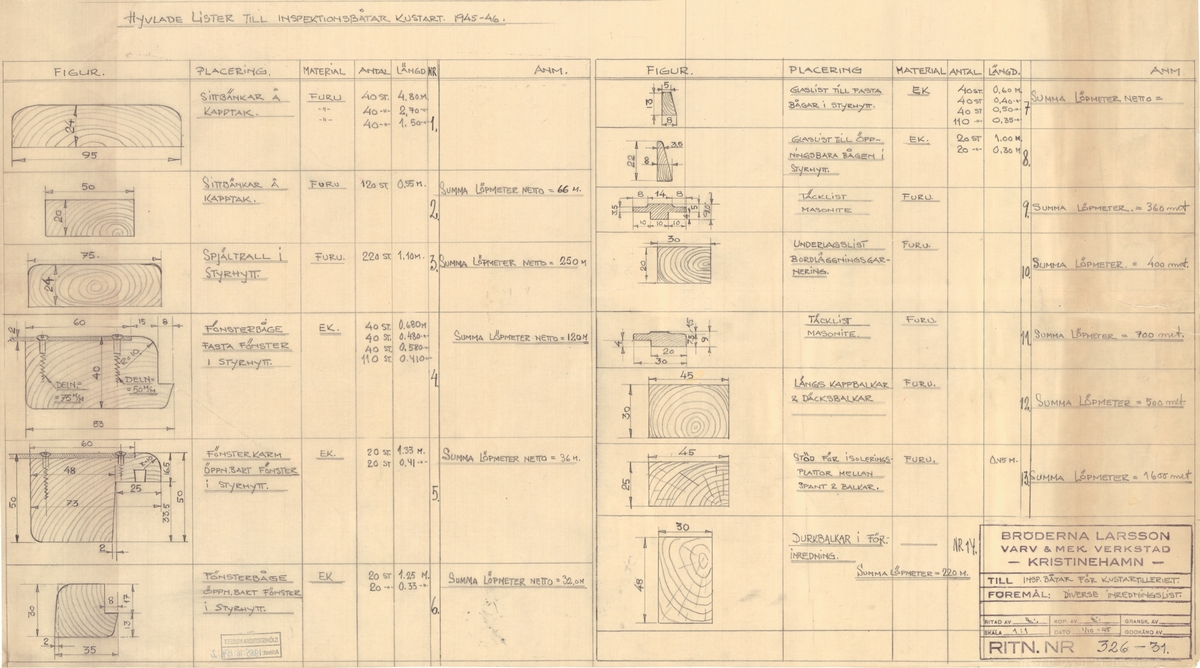 HYVLADE LISTER TILL INSPEKTIONSBÅTAR KUSTART. 1945-46.
FIGUR. PLACERING. MATERIAL ANTAL LÄNGD NR ANM.
SITTBÄNKAR Å FURU 40 ST. 4,80 M.
KAPPTAK. -"- 40 -"- 2,70 -"-
-"- 40 -"- 1,50 -"- 1.
24
95
SITTBÄNKAR Å FURU 120 ST. 0,55 M. SUMMA LÖPMETER NETTO = 66 M.
KAPPTAK. 2.
50
20
SPJÄLTRALL I FURU. 220 ST. 1.10 M. 3. SUMMA LÖPMETER NETTO = 250 M
STYRHYTT.
75.
24
FÖNSTERBÅGE EK. 40 ST. 0.680 M SUMMA LÖPMETER NETTO = 120 M
FASTA FÖNSTER 40 ST. 0.480 -"-
I STYRHYTT. 40 ST. 0.580 -"-
110 ST 0.410 -"- 4.
60 15 8
2
4
40
R=10
DELN= =75 M/M
DELN= =50 M/M
83
FÖNSTERKARM EK. 20 ST 1.33 M. SUMMA LÖPMETER NETTO = 36 M.
ÖPPN.BART FÖNSTER 20 ST 0,41 -"-
I STYRHYTT. 5.
60
48
73
25
50
16.5
33.5
50
2
FÖNSTERBÅGE EK 20 ST 1.25 M. SUMMA LÖPMETER NETTO = 32,0 M
ÖPPN.BART FÖNSTER 20 -"- 0.33 -"-
I STYRHYTT. 6.
30
8
17
13
2
35
FIGUR. PLACERING MATERIAL ANTAL LÄNGD. ANM
GLASLIST TILL FASTA EK 40 ST. 0,60 M. SUMMA LÖPMETER NETTO =
BÅGAR I STYRHYTT. 40 ST 0,40 -"- 7
40 ST 0,50 -"-
110 -"- 0,35 -"-
5
13
8
GLASLIST TILL ÖPP- EK. 20 ST 1.00 M
NINGSBARA BÅGEN I 20 -"- 0,30 M 8.
STYRHYTT.
3,5
22
8
TÄCKLIST FURU. 9. SUMMA LÖPMETER. = 360 met
MASONITE
8 14 8
3.5
4
5
9,0
10 10 10
UNDERLAGSLIST FURU.
BORDLÄGGNINGSGAR- 10. SUMMA LÖPMETER = 400 met.
NERING.
30
20
TÄCKLIST FURU.
MASONITE. 11. SUMMA LÖPMETER = 700 met.
4
20
30
9
LÄNGS KAPPBALKAR FURU.
& DÄCKSBALKAR 12. SUMMA LÖPMETER = 500 met
45
30
STÖD FÖR ISOLERINGS- FURU. 0,45 M.
PLATTOR MELLAN 13 SUMMA LÖPMETER = 1600 met
SPANT & BALKAR.
45
25
DURKBALKAR I FÖR- NR 14.
INREDNING.
SUMMA LÖPMETER = 220 M.
30
48
BRÖDERNA LARSSON
VARV & MEK. VERKSTAD
— KRISTINEHAMN —
TILL INSP. BÅTAR FÖR KUSTARTILLERIET.
FÖREMÅL: DIVERSE INREDNINGSLIST.
RITAD AV KOP. AV GRANSK. AV
SKALA 1:1 DATO 1/10-45 GODKÄND AV
RITN. NR 326-31.